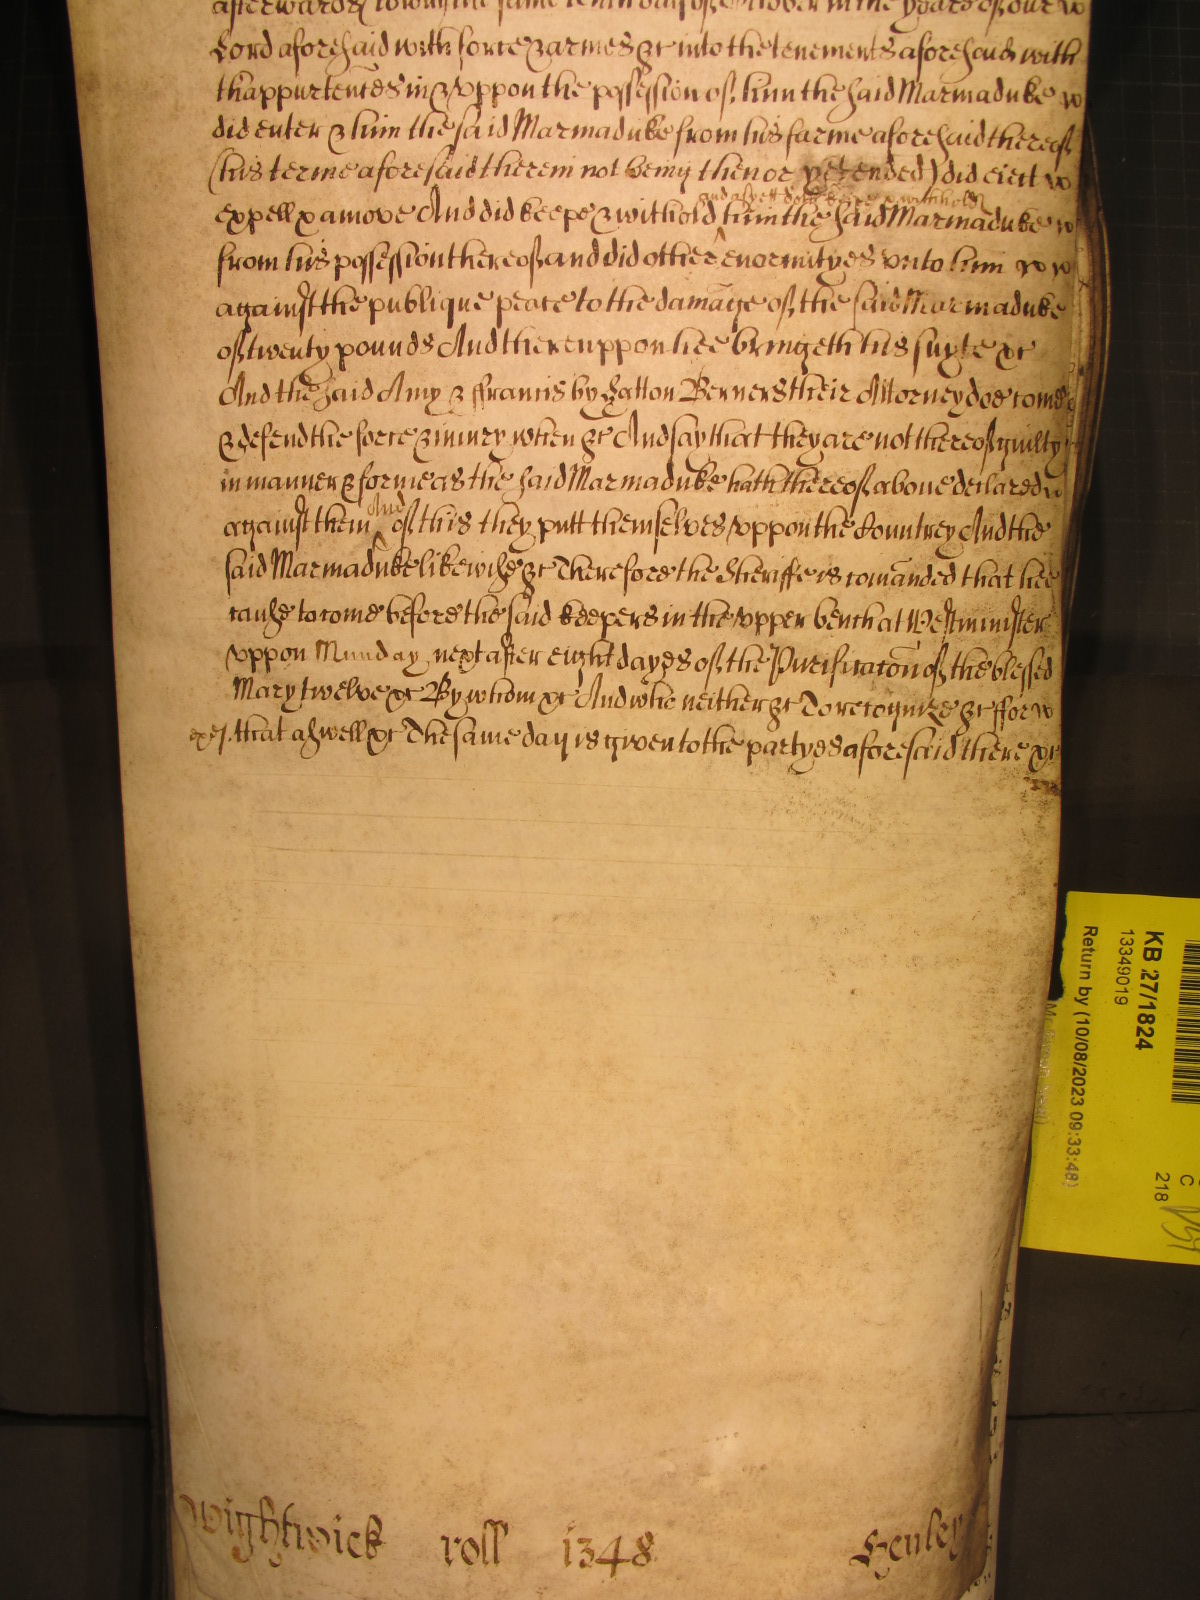 afterwards to witt the same tenth day of October in the yeare of our
Lord aforesaid with force & armes &c into the tenements aforesaid with
thappurtenćes in & vppon the possession of him the said Marmaduke
did enter & him the said Marmaduke from his farme aforesaid thereof
(his terme aforesaid therein not being then or yet ended) did eiect
and as yett doth keepe & withhold
expell & amove And did keepe & withold him the said Marmaduke
from his possession thereof and did other enormityes vnto him
against the publique peace to the damage of the said Marmaduke
of twenty pounds And thereuppon hee bringeth his suyte &c
And the said Amy & ffrancis by Hatton Berners their Attorney doe come
& defend the force & iniury when &c And say that they are not thereof guilty
in manner & forme as the said Marmaduke hath thereof aboue declared
against them And of this they putt themselves vppon the Countrey And the
said Marmaduke likewise &c Therefore the Sheriffe is comanded that hee
cause to come before the said keepers in the vpper bench at Westminster
vppon Munday next after eight dayes of the Purificaćon of the blessed
Mary twelve &c By whom &c And who neither &c To recognize &c ffor
that aswell &c The same day is given to the partyes aforesaid there &c
Wightwick roll 1348 Henley
KB 27/1824
13349019
Return by (10/08/2023 09:33:48)
C
218